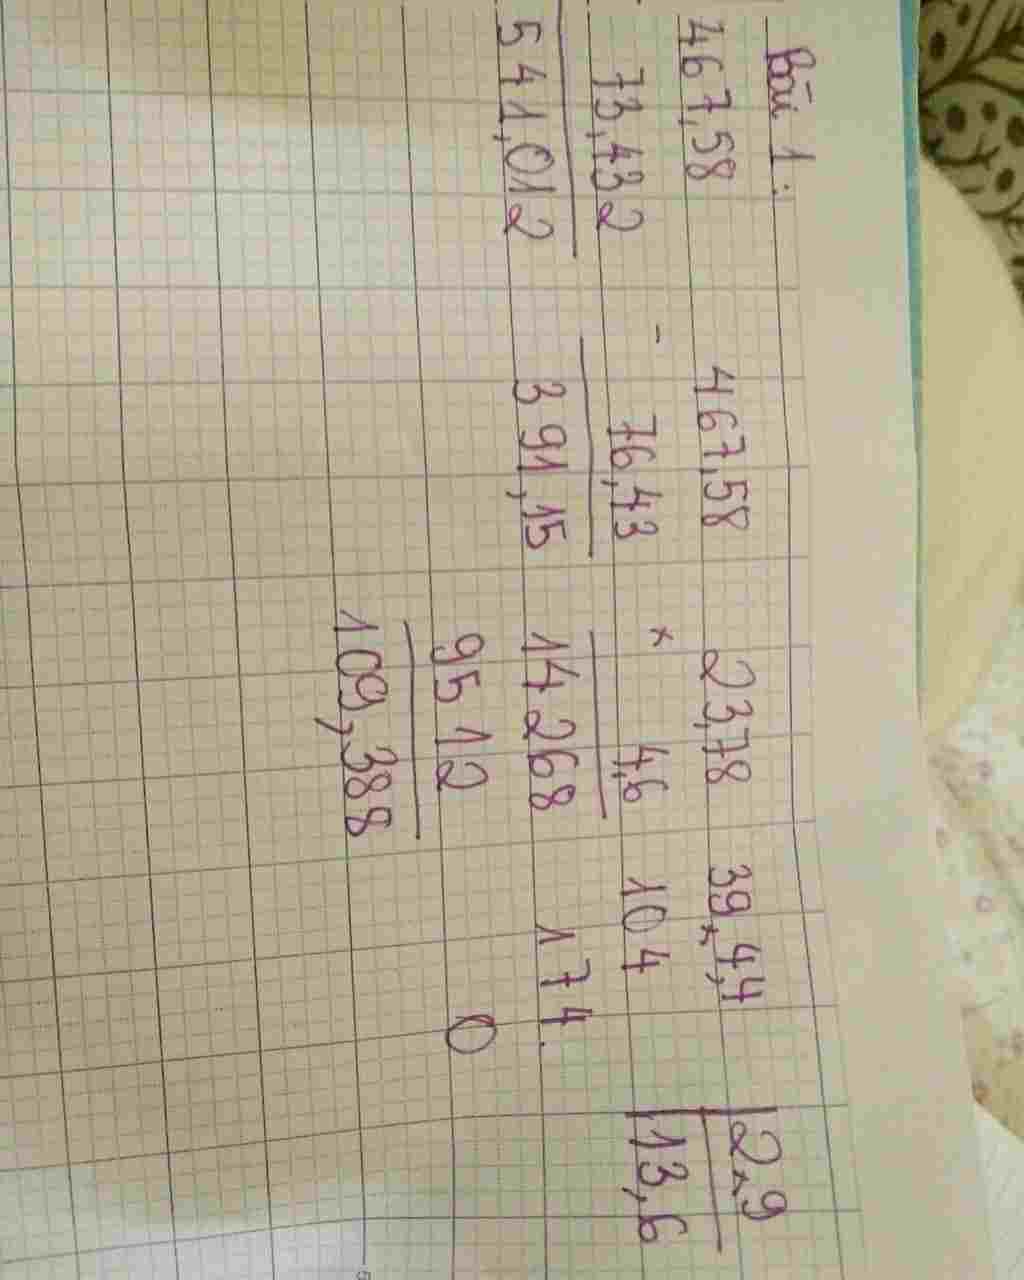 Bài 1:
467,58 467,58 23,78 39,4,4 2,9
73,432 - 76,43 × 4,6 104 13,6
541,012 391,15 14268 174
9512 0
109,388